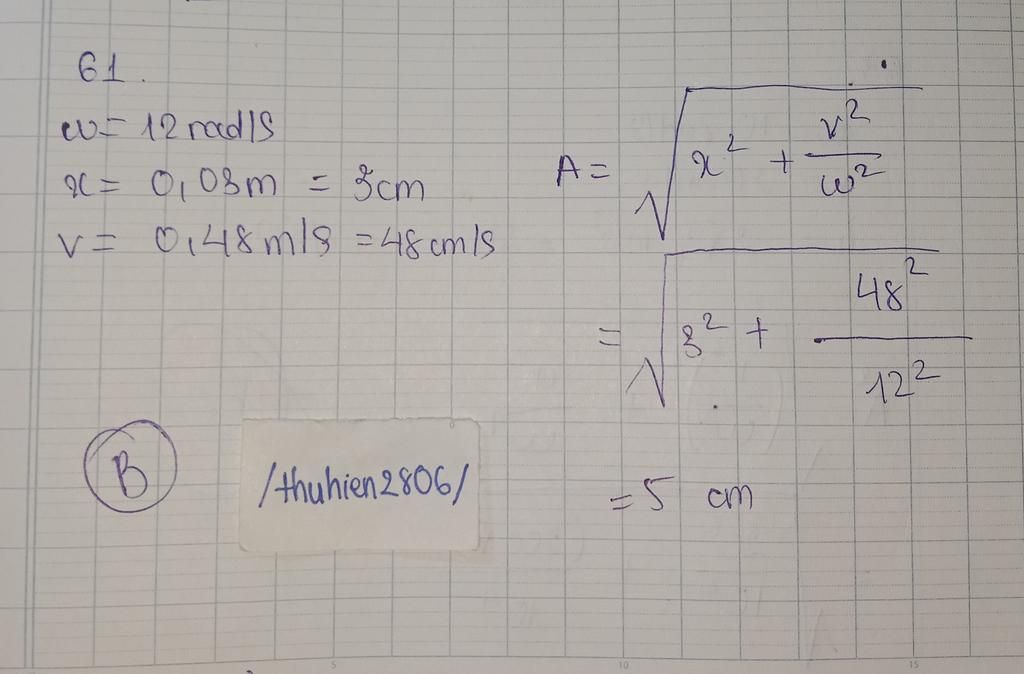 61.
ω = 12 rad/s
x = 0,03m = 3cm
v = 0,48 m/s = 48 cm/s
A = √(x² + v²/ω²)
= √(3² + 48²/12²)
= 5 cm
B
/thuhien2806/
5 10 15